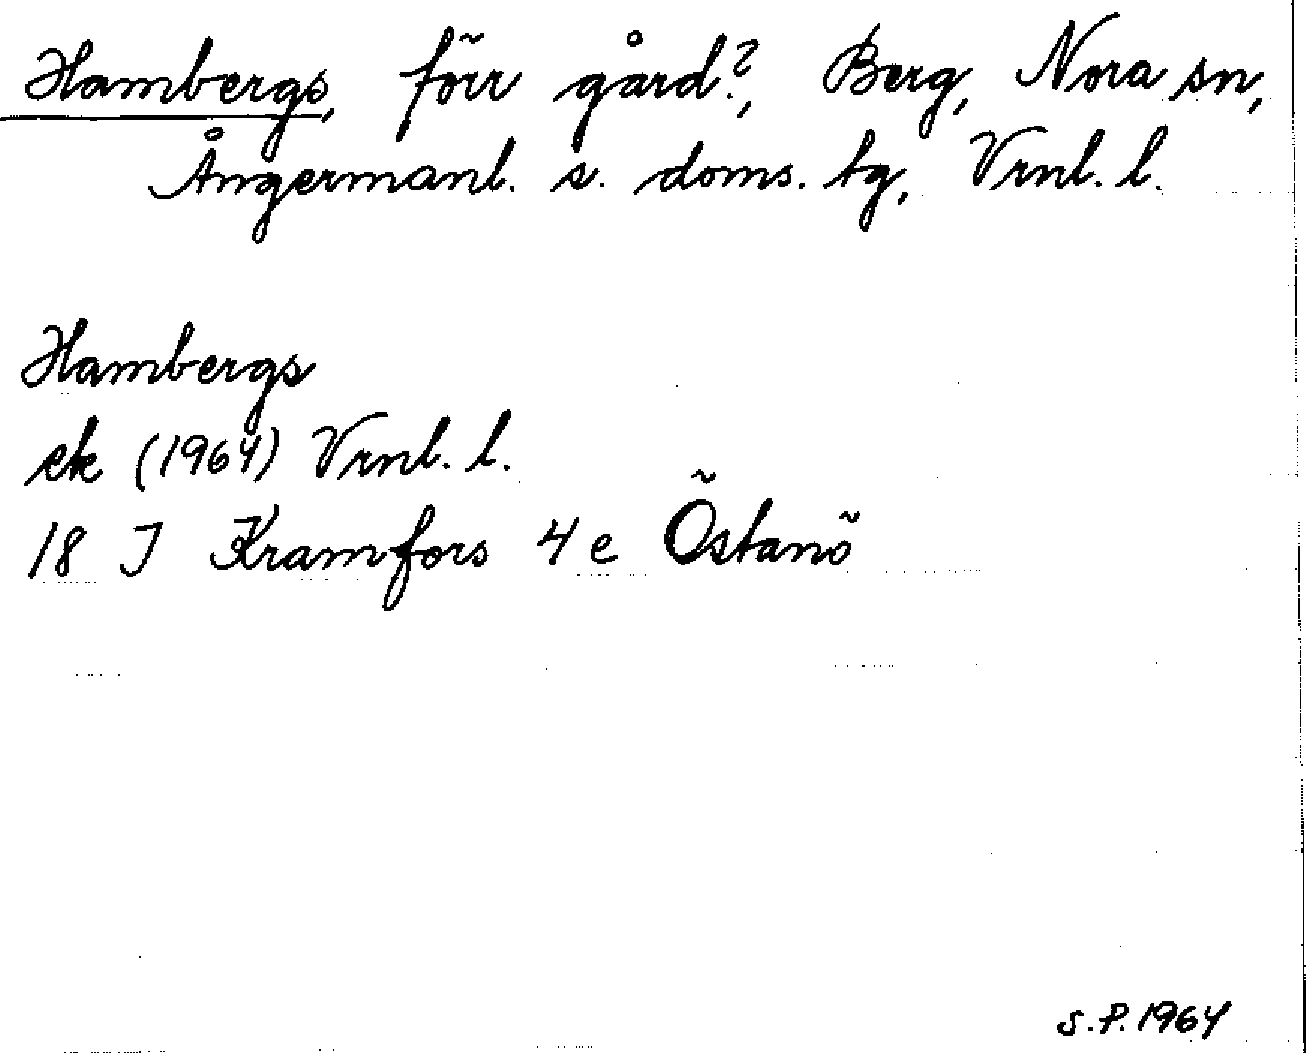 Hambergs, förr gård?, Berg, Nora sn,
Ångermanl. s. doms. tg, Vrnl. l.
Hambergs
ek (1964) Vrnl. l.
18 I Kramfors 4 e Östanö
S.P. 1964